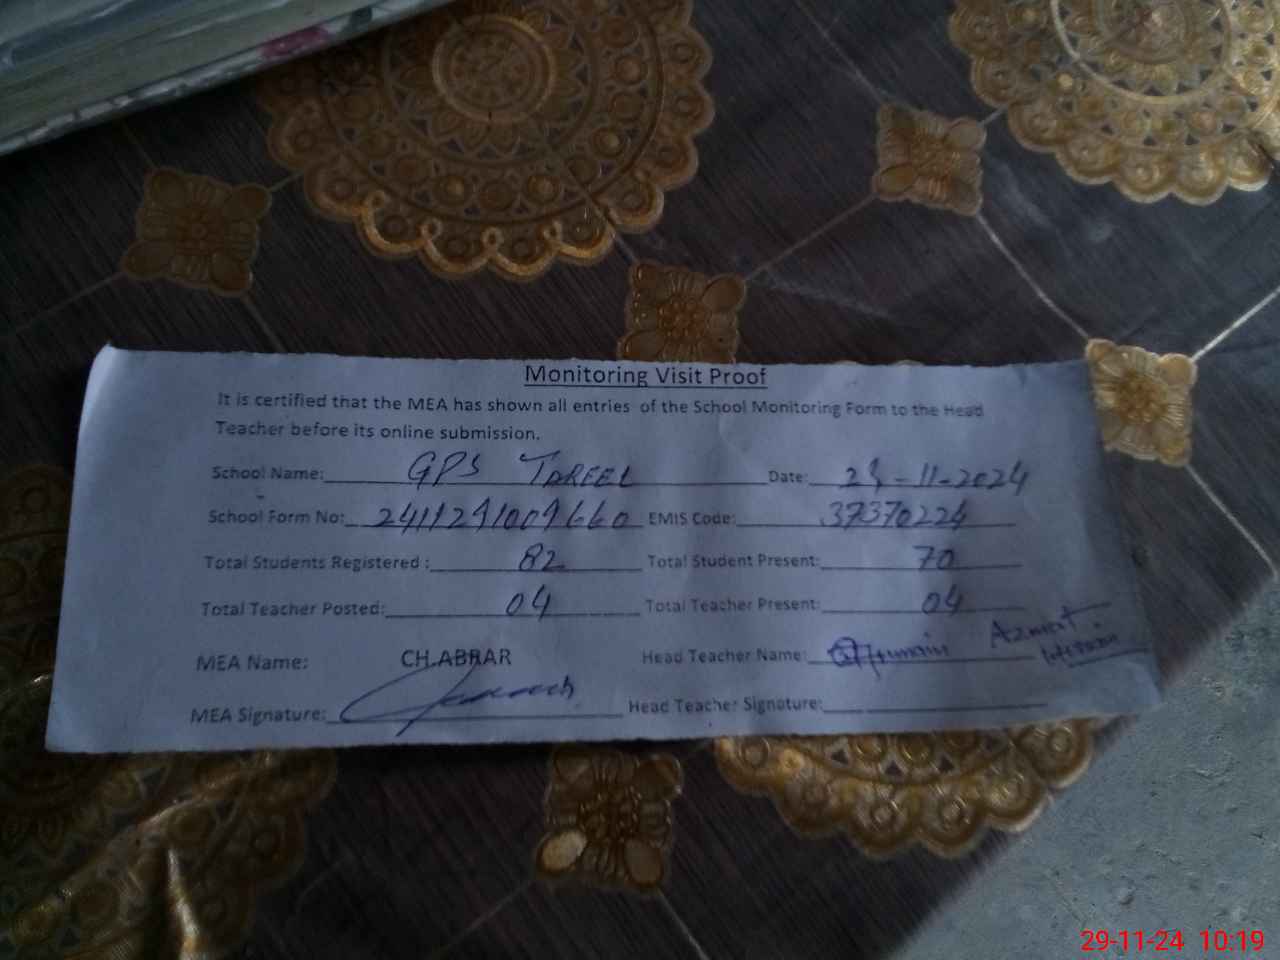 Monitoring Visit Proof
It is certified that the MEA has shown all entries of the School Monitoring Form to the Head
Teacher before its online submission.
School Name: GPS TAREEL Date: 29-11-2024
School Form No: 2411291009660 EMIS Code: 37370224
Total Students Registered : 82 Total Student Present: 70
Total Teacher Posted: 04 Total Teacher Present: 04
MEA Name: CH.ABRAR Head Teacher Name: Azmat
MEA Signature: Head Teacher Signature:
29-11-24 10:19